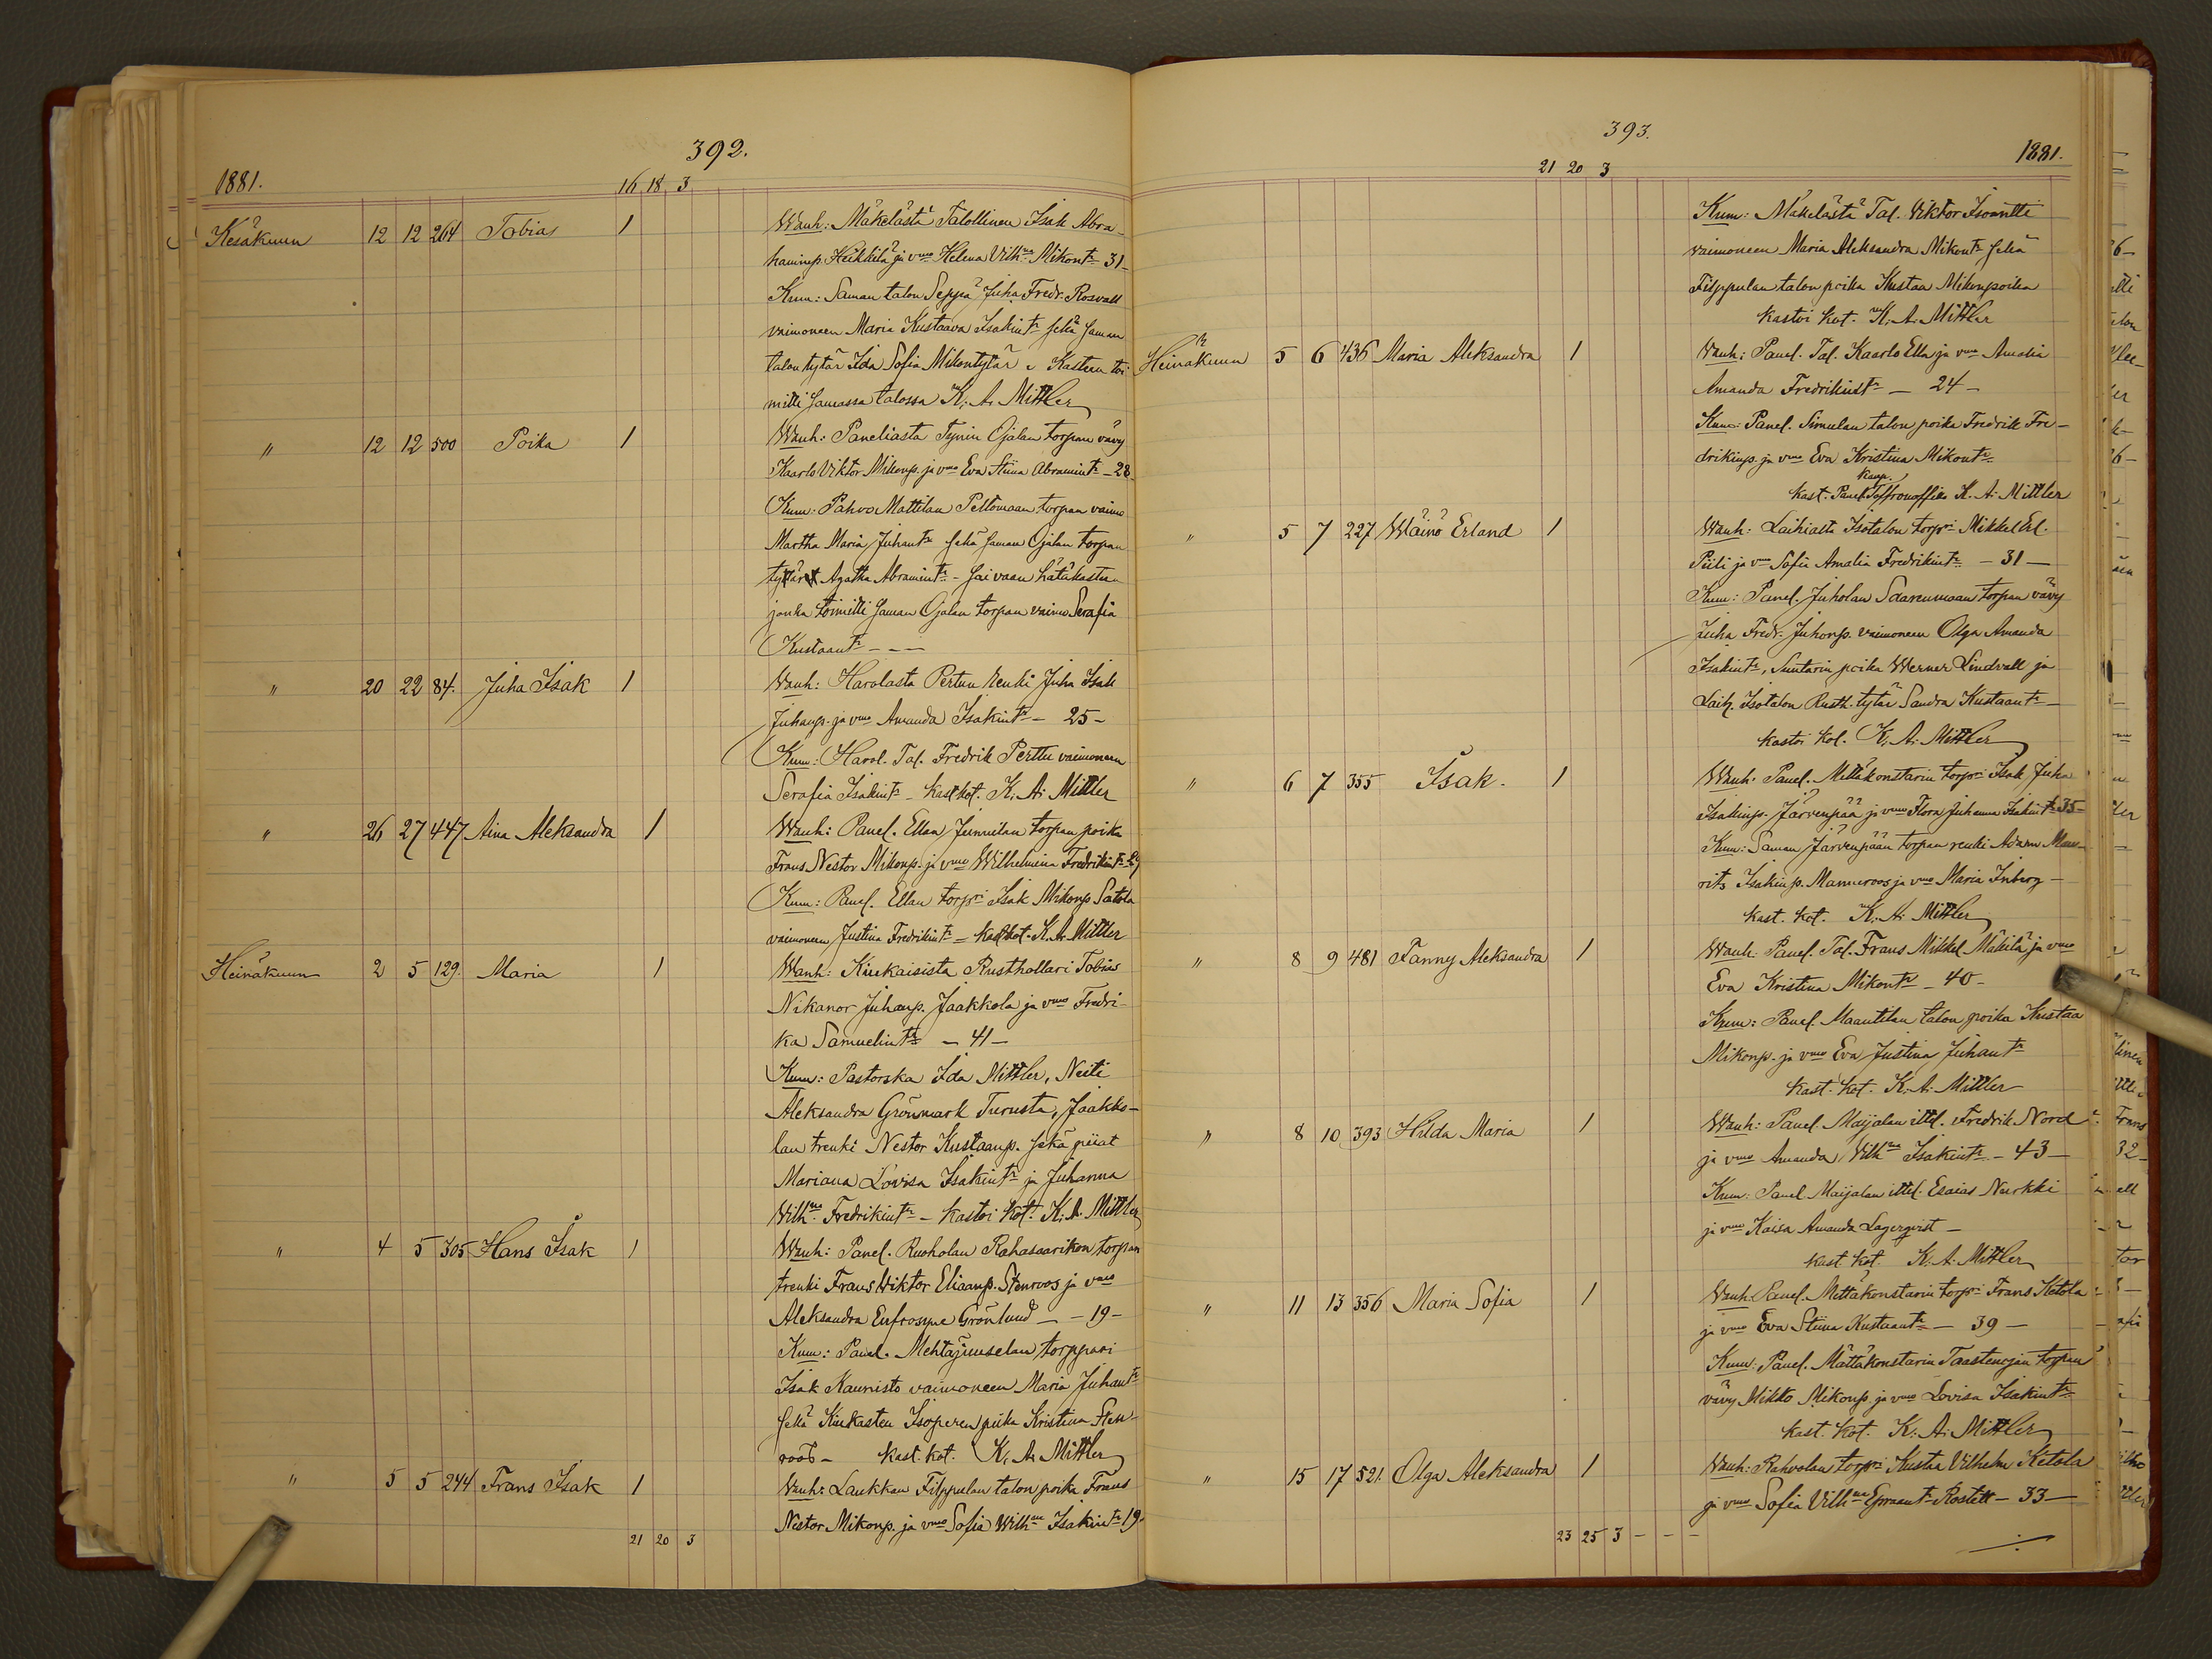 392.
1881.
16 18 3
Kesäkuun 12 12 264 Tobias 1 Wanh: Mäkelästä Talollinen Isak Abra-
haminp. Heikkilä ja vmo Helena Vilhna Mikontr 31-
Kum: Saman talon Seppä Juha Fredr. Rosvall
vaimoneen Maria Kustaava Isakintr sekä saman
talon tytär Ida Sofia Mikontytär. Kasteen toi-
mitti samassa talossa K. A. Mittler
" 12 12 500 Poika 1 Wanh: Paneliasta Tynin Ojalan torpan vävy
Kaarlo Viktor Mikonp. ja vmo Eva Stiina Abramintr - 28
Kum: Pahvo Mattilan Peltomaan torpan vaimo
Martha Maria Juhantr sekä saman Ojalan torpan
tytär Agatha Abramintr - sai vaan hätäkasteen
jonka toimitti saman Ojalan torpan vaimo Serafia
Kustaantr - - -
" 20 22 84. Juha Isak 1 Wanh: Harolasta Pertun renki Juha Isak
Juhanp. ja vmo Amanda Isakintr - 25 -
Kum: Harol. Tal. Fredrik Perttu vaimoneen
Serafia Isakintr - kast. kot. K. A. Mittler
" 26 27 447 Aina Aleksandra 1 Wanh: Panel. Ellan Junnilan torpan poika
Frans Nestor Mikonp. ja vmo Wilhelmina Fredrikintr
Kum: Panel. Ellan torpri Isak Mikonp Satola
vaimoneen Justina Fredrikintr = kast. kot. K. A. Mittler
Heinäkuun 2 5 129. Maria 1 Wanh: Kiukaisista Rusthollari Tobias
Nikanor Juhanp. Jaakkola ja vmo Fredri-
ka Samuelintr - 41 -
Kum: Pastorska Ida Mittler, Neiti
Aleksandra Grönmark Turusta, Jaakko-
lan trenki Nestor Kustaanp. sekä piiat
Mariana Lovisa Isakintr ja Juhanna
Vilhna Fredrikintr - kastoi kot. K. A. Mittler
" 4 5 305 Hans Isak 1 Wanh: Panel. Ruoholan Rahasaarikon torpan
trenki Frans Wiktor Eliaanp. Stenroos ja vmo
Aleksandra Eufrosyne Grönlund - - 19 -
Kum: Panel. Mehtäjunselan torppari
Isak Kaunisto vaimoneen Maria Juhantr
sekä Kiukasten Isoperen piika Kristina Sten-
roos - kast. kot. K. A. Mittler
" 5 5 244 Frans Isak 1 Wanh: Laukkan Filppulan talon poika Frans
Nestor Mikonp. ja vmo Sofia Wilhna Isakintr 19.
21 20 3
393.
1881.
21 20 3
Kum: Mäkelästä Tal. Viktor Isoanttti
vaimoneen Maria Aleksandra Mikontr sekä
Filppulan talon poika Kustaa Mikonpoika
kastoi kot. K. A. Mittler
Heinäkuun 5 6 436 Maria Aleksandra 1 Wanh: Panel. Tal. Kaarlo Ella ja vmo Amalia
Amanda Fredrikintr - 24 -
Kum: Panel. Simulan talon poika Fredrik Fre-
drikinp. ja vmo Eva Kristina Mikontr
kast. Panel. K. A. Mittler
" 5 7 227 Wäinö Erland 1 Wanh: Laihiasta Isotalon torpri Mikkel Erl.
Piili ja vmo Sofia Amalia Fredrikintr - 31 -
Kum: Panel. Juholan Saarenmaan torpan vävy
Juha Fredr. Juhonp. vaimoneen Olga Amanda
Isakintr, Suntarin poika Werner Lindvall ja
Laih. Isotalon Rusth. tytär Sandra Kustaantr -
kastoi kot. K. A. Mittler
" 6 7 355 Isak. 1 Wanh: Panel. Mättäkonstarin torpri Isak Juha
Isakinp. Järvenpää ja vmo Flora Juhanna Isakintr 35 -
Kum: Saman Järvenpään torpan renki Adam Mau-
rits Isakinp. Mannroos ja vmo Maria Inberg -
kast. kot. K. A. Mittler
" 8 9 481 Fanny Aleksandra 1 Wanh: Panel. Tal. Frans Mikkel Mäkilä ja vmo
Eva Kristina Mikontr - 40 -
Kum: Panel. Maantilan talon poika Kustaa
Mikonp. ja vmo Eva Justina Juhantr
kast. kot. K. A. Mittler
" 8 10 393 Hilda Maria 1 Wanh: Panel. Maijalan ittl. Fredrik Nord
ja vmo Amanda Vilhna Isakintr - 43 -
Kum: Panel Maijalan ittl. Esaias Nurkki
ja vmo Kaisa Amanda Lagerqvist -
kast. kot. K. A. Mittler
" 11 13 356 Maria Sofia 1 Wanh: Panel. Mättäkonstarin torpri Frans Ketola
ja vmo Eva Stiina Kustaantr - 39 -
Kum: Panel. Mättäkonstarin Taastenojan torpan
vävy Mikko Mikonp. ja vmo Lovisa Isakintr
kast. kot. K. A. Mittler
" 15 17 521. Olga Aleksandra 1 Wanh: Rahvolan torpri Kustaa Vilhelm Ketola
ja vmo Sofia Vilhna Epraantr Rostett - 33 -
23 25 3 - - -